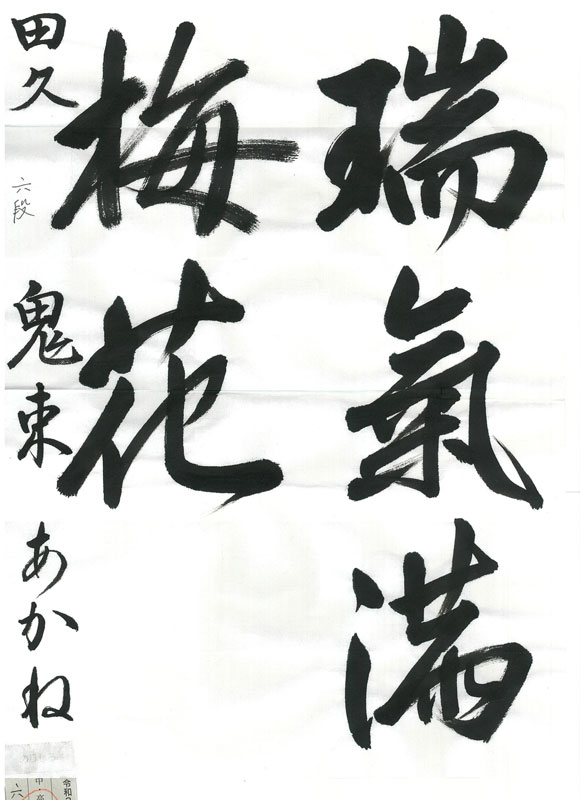 瑞氣満
梅花
田久 六段 鬼束 あかね
令和
中高
六